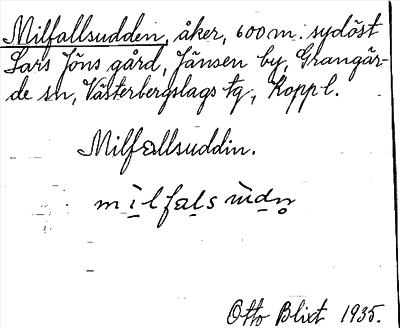 Milfallsudden, åker, 600 m. sydöst
Lars Jöns gård, Jänsen by, Grangär-
de sn, Västerbergslags tg, Koppl.
Milfallsuddin.
milfals ùdn̥
Otto Blixt 1935.